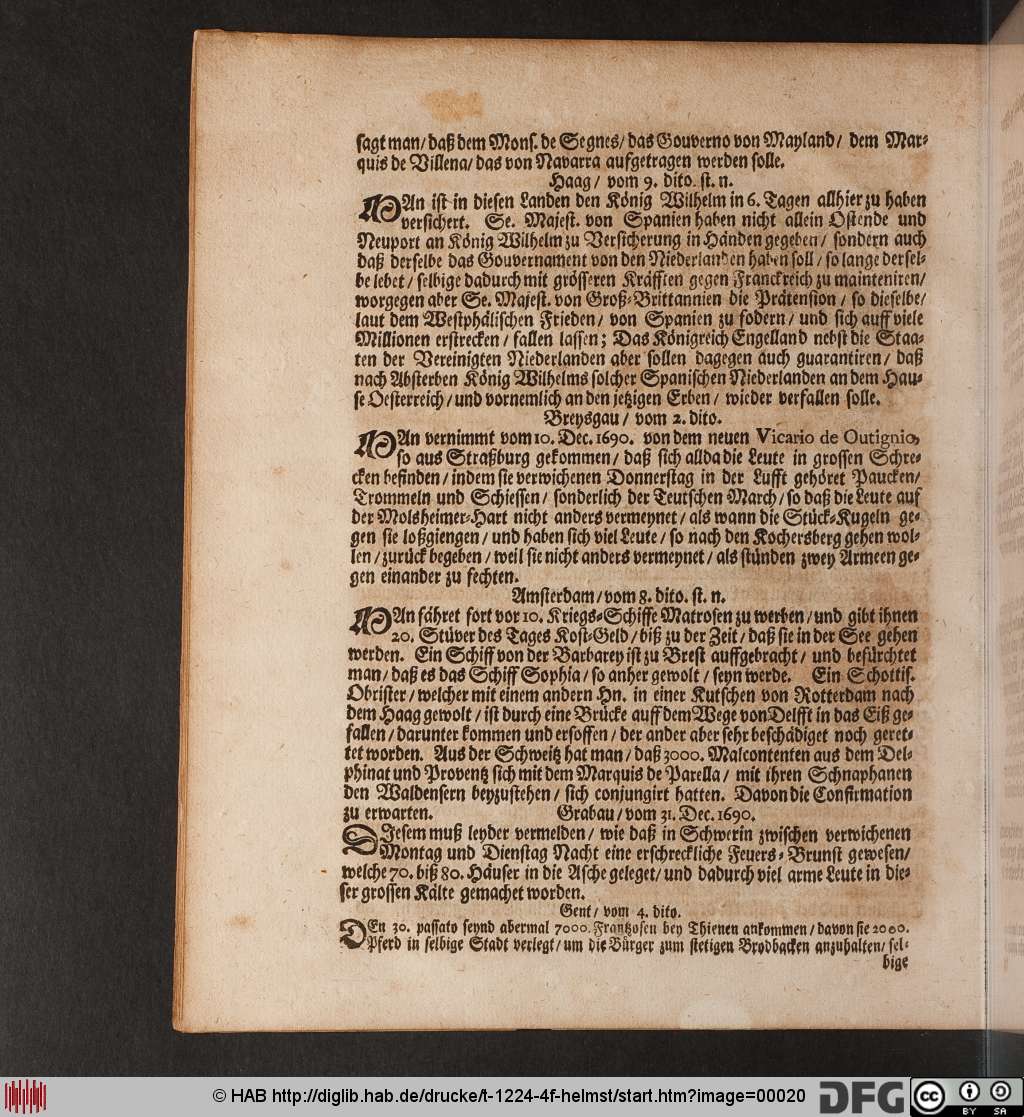 sagt man / daß dem Mons. de Segnes / das Gouverno von Mayland / dem Mar-
quis de Villena / das von Navarra aufgetragen werden solle.
Haag / vom 9. dito. st. n.
MAn ist in diesen Landen den König Wilhelm in 6. Tagen allhier zu haben
versichert. Se. Majest. von Spanien haben nicht allein Ostende und
Neuport an König Wilhelm zu Versicherung in Händen gegeben / sondern auch
daß derselbe das Gouvernament von den Niederlanden haben soll / so lange dersel-
be lebet / selbige dadurch mit grösseren Kräfften gegen Franckreich zu mainteniren /
worgegen aber Se. Majest. von Groß-Brittannien die Prätension / so dieselbe /
laut dem Westphälischen Frieden / von Spanien zu fodern / und sich auff viele
Millionen erstrecken / fallen lassen; Das Königreich Engelland nebst die Staa-
ten der Vereinigten Niederlanden aber sollen dagegen auch guarantiren / daß
nach Absterben König Wilhelms solcher Spanischen Niederlanden an dem Hau-
se Oesterreich / und vornemlich an den jetzigen Erben / wieder verfallen solle.
Breysgau / vom 2. dito.
MAn vernimmt vom 10. Dec. 1690. von dem neuen Vicario de Outignio,
so aus Straßburg gekommen / daß sich allda die Leute in grossen Schre-
cken befinden / indem sie verwichenen Donnerstag in der Lufft gehöret Paucken /
Trommeln und Schiessen / sonderlich der Teutschen March / so daß die Leute auf
der Molsheimer-Hart nicht anders vermeynet / als wann die Stück-Kugeln ge-
gen sie loßgiengen / und haben sich viel Leute / so nach den Kochersberg gehen wol-
len / zurück begeben / weil sie nicht anders vermeynet / als stünden zwey Armeen ge-
gen einander zu fechten.
Amsterdam / vom 8. dito. st. n.
MAn fähret fort vor 10. Kriegs-Schiffe Matrosen zu werben / und gibt ihnen
20. Stüver des Tages Kost-Geld / biß zu der Zeit / daß sie in der See gehen
werden. Ein Schiff von der Barbarey ist zu Brest auffgebracht / und befürchtet
man / daß es das Schiff Sophia / so anher gewolt / seyn werde. Ein Schottis.
Obrister / welcher mit einem andern Hn. in einer Kutschen von Rotterdam nach
dem Haag gewolt / ist durch eine Brücke auff dem Wege von Delfft in das Eiß ge-
fallen / darunter kommen und ersoffen / der ander aber sehr beschädiget noch geret-
tet worden. Aus der Schweitz hat man / daß 3000. Malcontenten aus dem Del-
phinat und Proventz sich mit dem Marquis de Parella / mit ihren Schnaphanen
den Waldensern beyzustehen / sich conjungirt hatten. Davon die Confirmation
zu erwarten. Grabau / vom 31. Dec. 1690.
DIesem muß leyder vermelden / wie daß in Schwerin zwischen verwichenen
Montag und Dienstag Nacht eine erschreckliche Feuers-Brunst gewesen /
welche 70. biß 80. Häuser in die Asche geleget / und dadurch viel arme Leute in die-
ser grossen Kälte gemachet worden.
Gent / vom 4. dito.
DEn 30. passato seynd abermal 7000. Frantzosen bey Thienen ankommen / davon sie 2000.
Pferd in selbige Stadt verlegt / um die Bürger zum stetigen Brodbacken anzuhalten / sel-
bige
© HAB http://diglib.hab.de/drucke/t-1224-4f-helmst/start.htm?image=00020 DFG cc BY SA